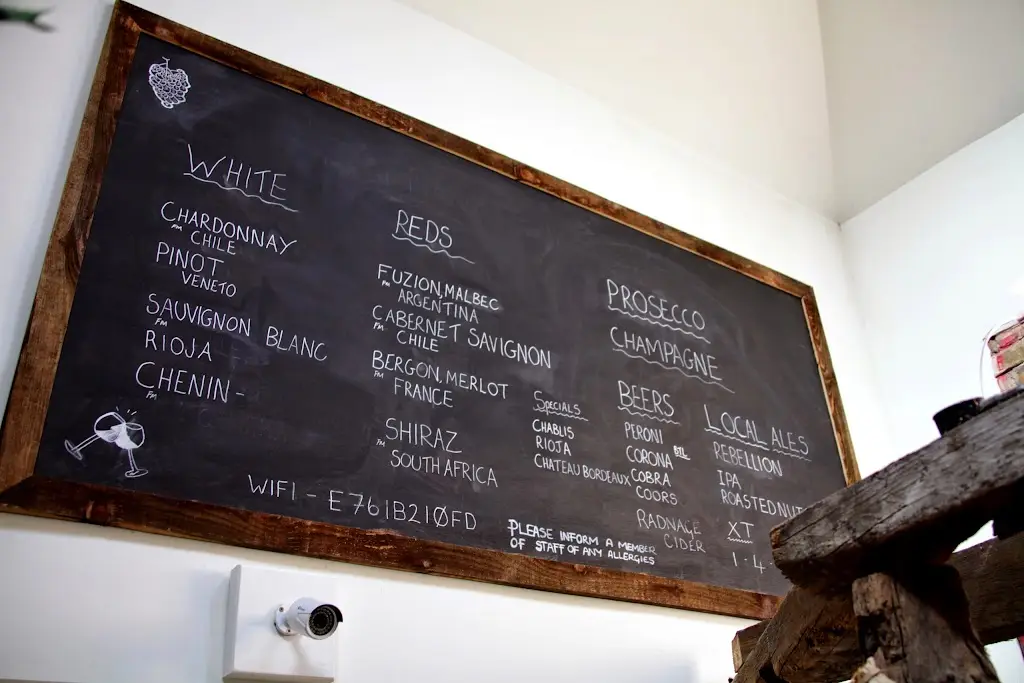 WHITE
CHARDONNAY
FM CHILE
PINOT
VENETO
SAUVIGNON BLANC
FM
RIOJA
CHENIN -
FM
REDS
FUZION, MALBEC
FM ARGENTINA
CABERNET SAVIGNON
FM CHILE
BERGON, MERLOT
FM FRANCE
SHIRAZ
FM SOUTH AFRICA
SPECIALS
CHABLIS
RIOJA
CHATEAU BORDEAUX
PROSECCO
CHAMPAGNE
BEERS
PERONI
CORONA BTL
COBRA
COORS
RADNAGE
CIDER
LOCAL ALES
REBELLION
IPA
ROASTED NUT
XT
1 - 4
WIFI - E761B210FD
PLEASE INFORM A MEMBER
OF STAFF OF ANY ALLERGIES